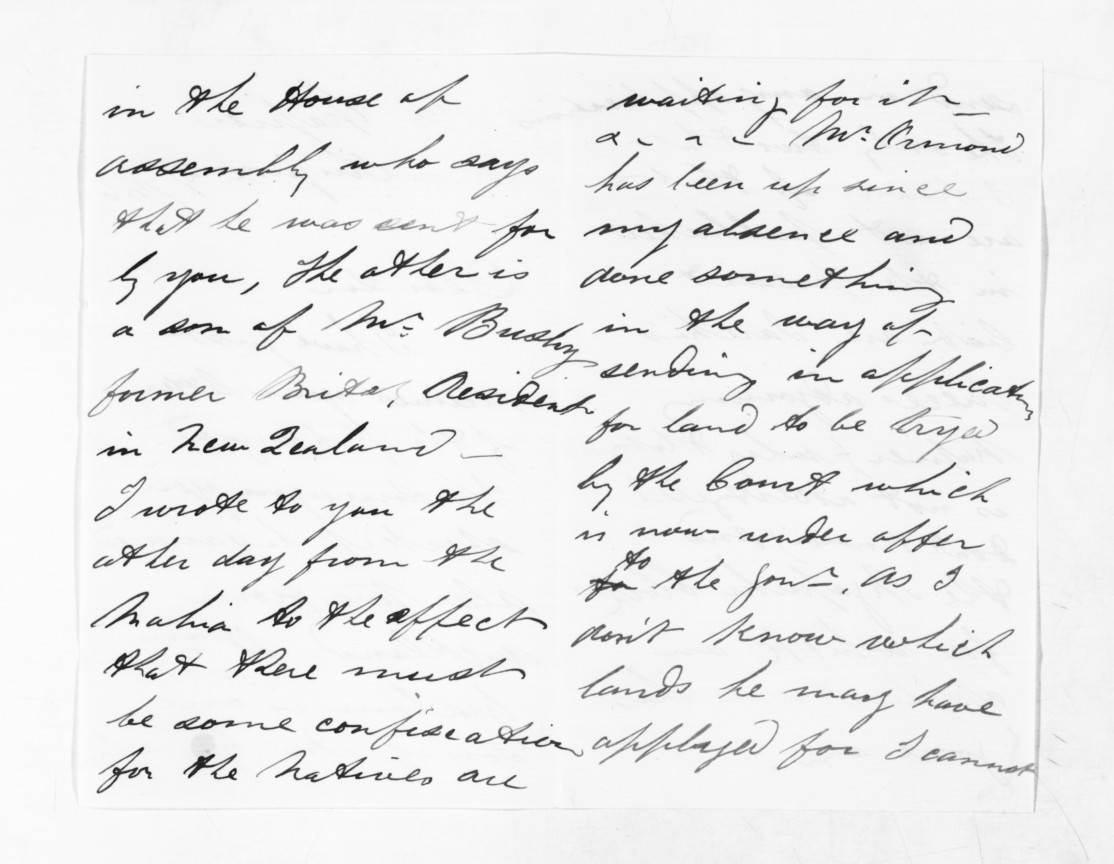 in the House of
assembly who says
that he was sent for
by you, the other is
a son of Mr. Busby
former British Resident
in New Zealand —
I wrote to you the
other day from the
Mahia to the effect
that there must
be some confiscation
for the Natives are
waiting for it —
Mr. Ormond
has been up since
my absence and
done something
in the way of
sending in applications
for land to be tryed
by the Court which
is now under offer
to the Govt. As I
don't know which
lands he may have
applyed for I cannot